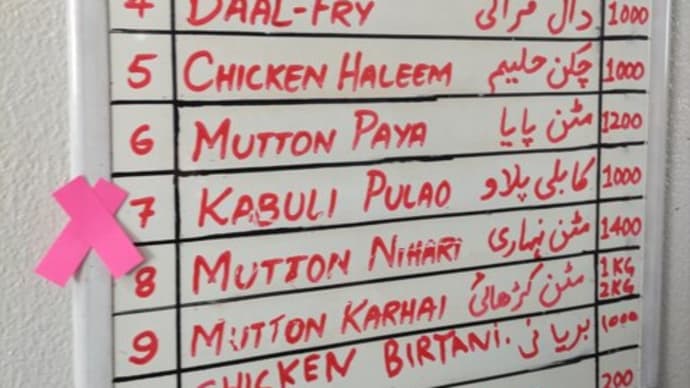 4 DAAL-FRY دال فرائی 1000
5 CHICKEN HALEEM چکن حلیم 1000
6 MUTTON PAYA مٹن پایا 1200
7 KABULI PULAO کابلی پلاو 1000
8 MUTTON NIHARI مٹن نہاری 1400
9 MUTTON KARHAI مٹن کڑھائی 1KG 2KG
CHICKEN BIRTANI. بریانی 1000
200